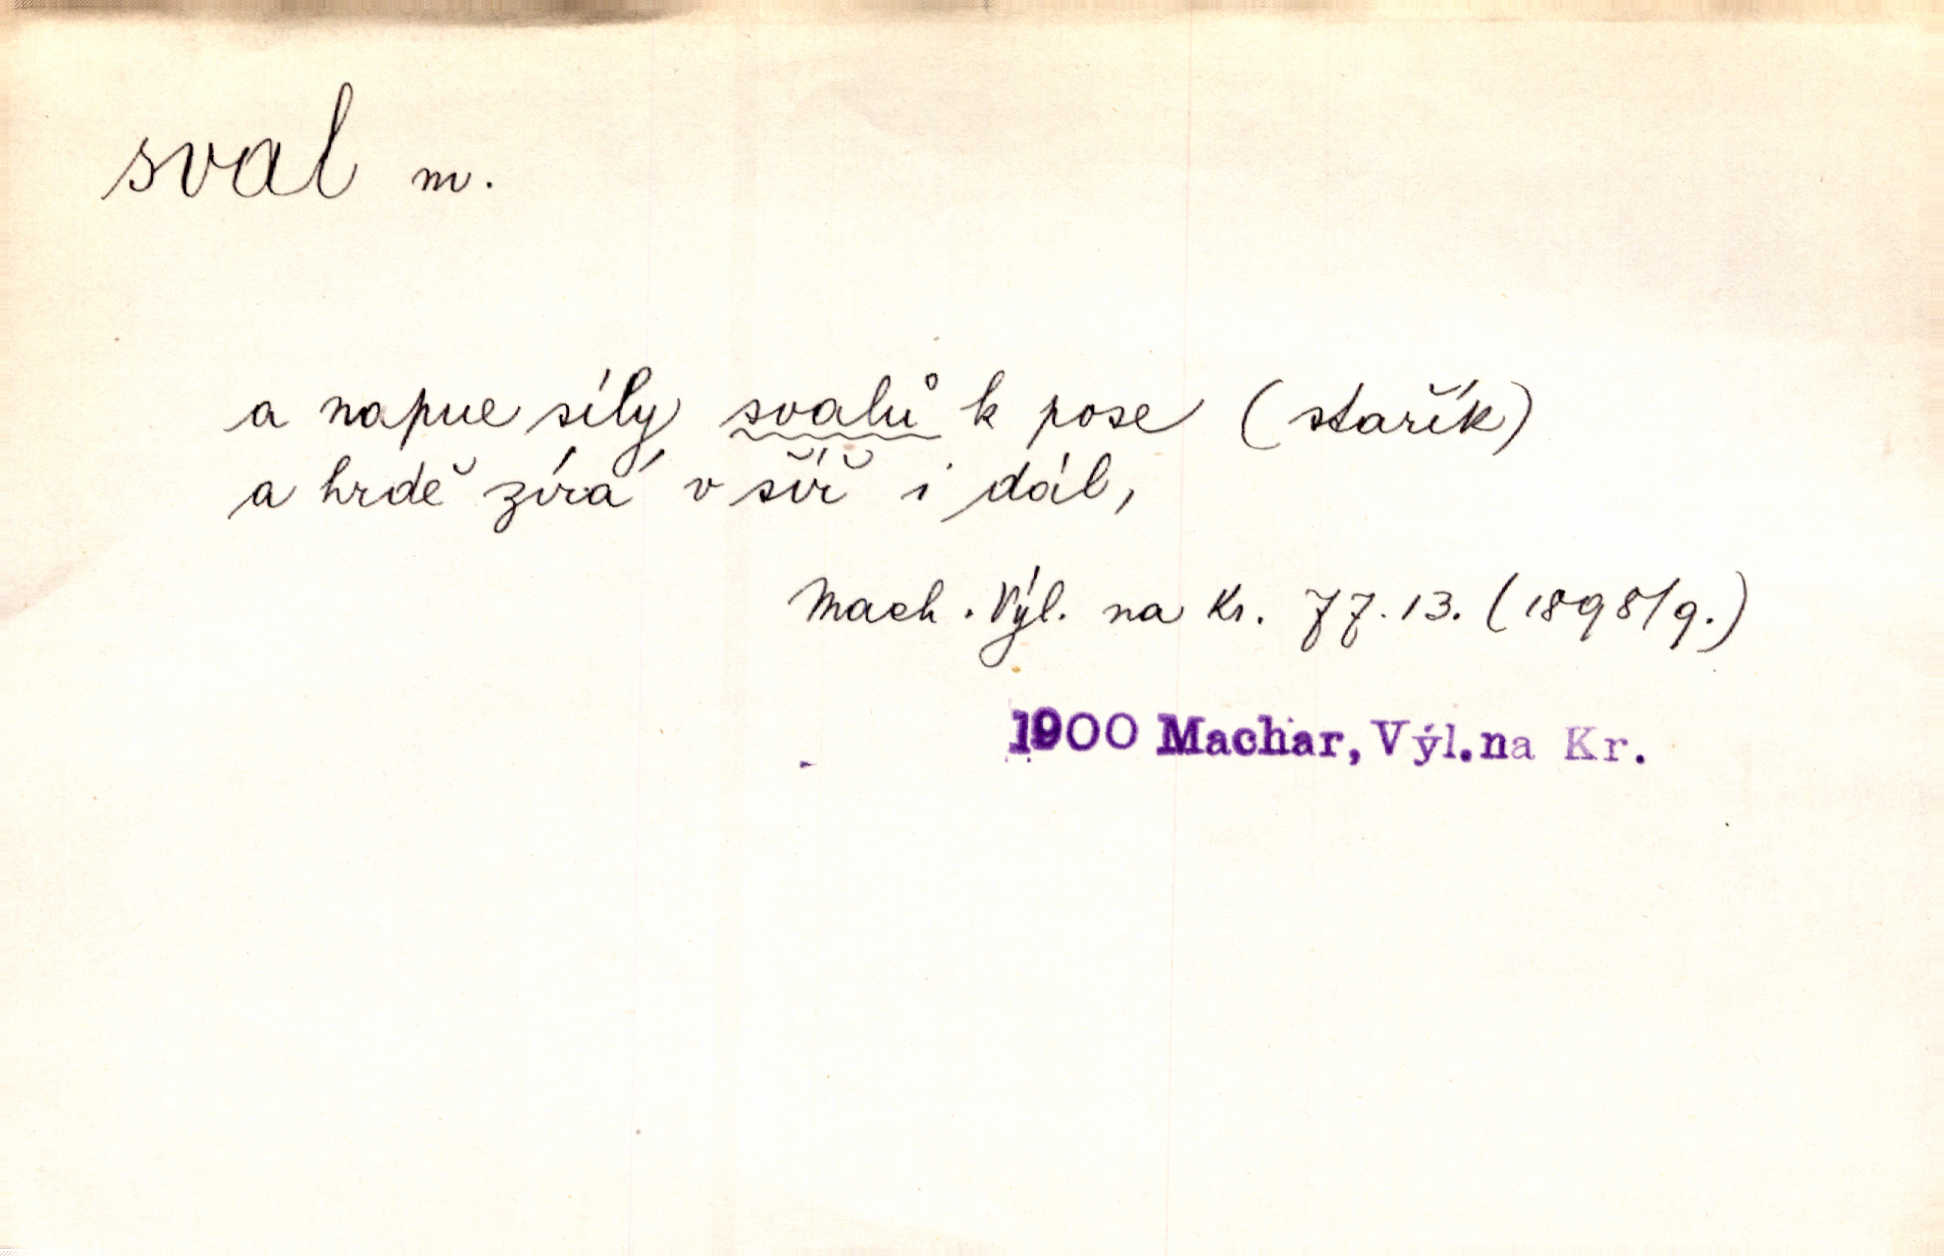 sval m.
a napne síly svalů k pose (stařík)
a hrdě zírá v šíř i dál,
Mach. Výl. na Kr. 77.13. (1898/9.)
1900 Machar, Výl.na Kr.